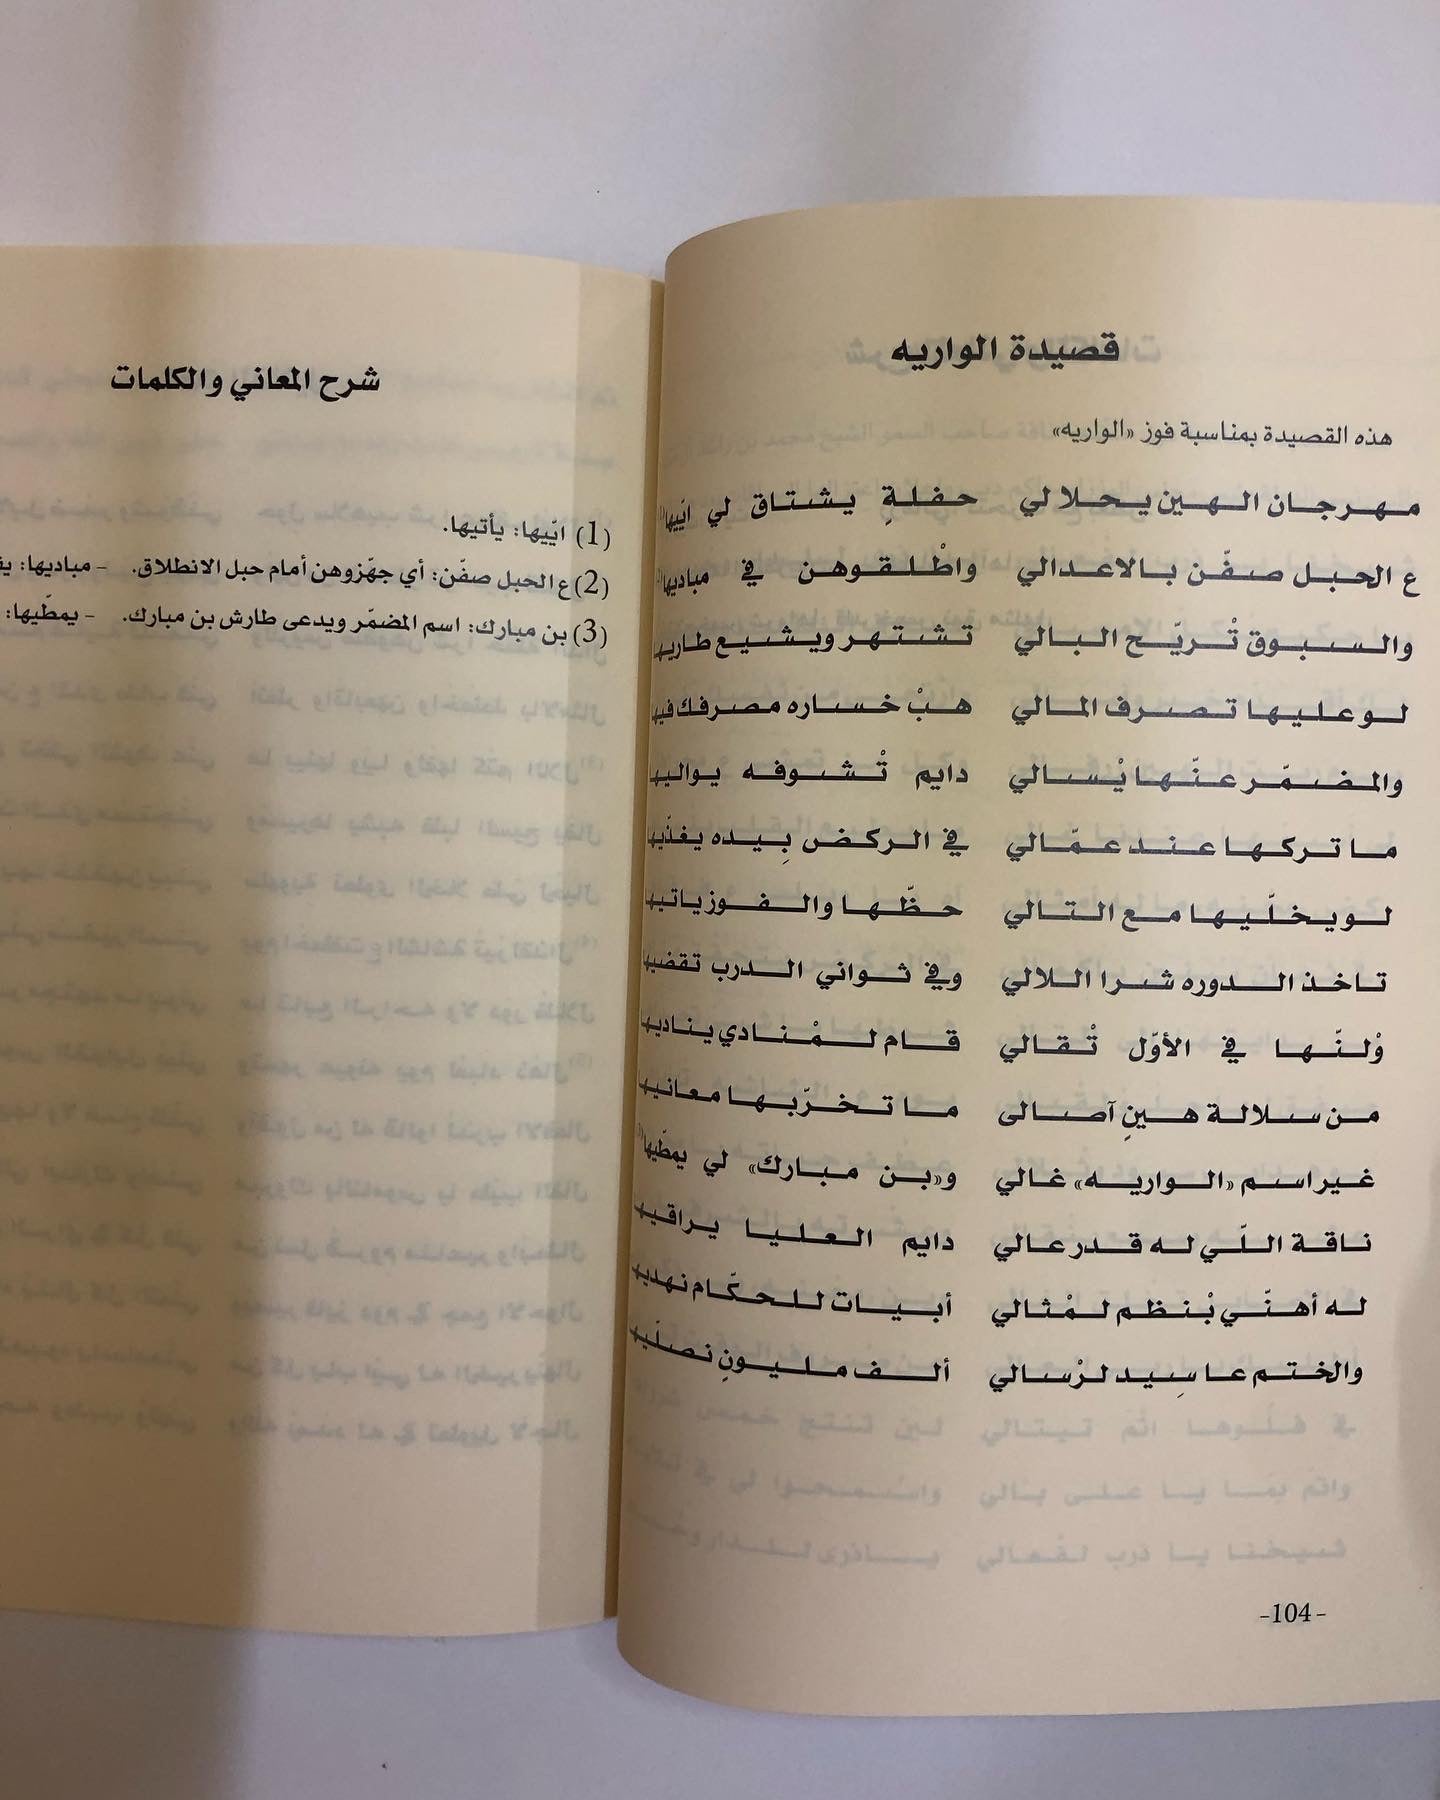 قصيدة الواريه
هذه القصيدة بمناسبة فوز «الواريه»
مهرجان الهين يحلالي حفلةٍ يشتاق لي ايّيها(1)
ع الحبل صفّن بالاعدالي واطْلقوهن في مباديها(2)
والسبوق تْريّح البالي تشتهر ويشيع طاريها
لو عليها تصرف المالي هبْ خساره مصرفك فيها
والمضمّر عنّها يْسالي دايم تْشوفه يواليها
ما تركها عند عمّالي في الركض بِيده يغذّيها
لو يخلّيها مع التالي حظّها والفوز ياتيها
تاخذ الدوره شرا اللالي وفي ثواني الدرب تقضيها
وْلنّها في الأوّل تْقالي قام لمْنادي يناديها
من سلالة هينٍ آصالى ما تخرّبها معانيها
غير اسم «الواريه» غالي و«بن مبارك» لي يمطّيها(3)
ناقة اللّي له قدر عالي دايم العليا يراقيها
له أهنّي بْنظم لمْثالي أبيات للحكّام نهديها
والختم عا سِيد لرْسالي ألف مليونٍ نصلّيها
-104-
شرح المعاني والكلمات
(1) ايّيها: يأتيها.
(2) ع الحبل صفّن: أي جهّزوهن أمام حبل الانطلاق. - مباديها:
(3) بن مبارك: اسم المضمّر ويدعى طارش بن مبارك. - يمطّيها: